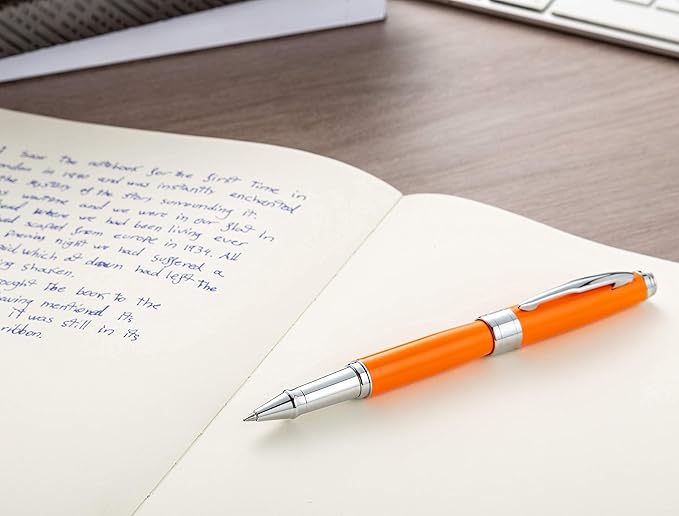 I saw the notebook for the first time in
London in 1940 and was instantly enchanted
the mystery of the story surrounding it.
wartime and we were in our flat in
where we had been living ever
scaped from europe in 1934. All
preving night we had suffered a
raid which at dawn had left the
ing shaken.
ought the book to the
having mentioned its
it was still in its
ribbon.